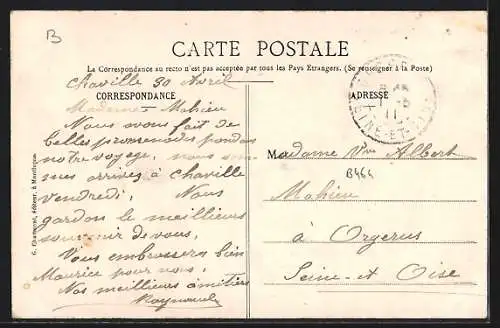 B
CARTE POSTALE
La Correspondance au recto n'est pas acceptée par tous les Pays Etrangers. (Se renseigner à la Poste)
CORRESPONDANCE
ADRESSE
Chaville 30 Avril
Madame Mahieu
Nous avons fait de
belles promenades pendant
notre voyage, nous
arrivés à Chaville
vendredi, Nous
gardon le meilleurs
souvenir de vous,
Vous embrasserez bien
Maurice pour nous,
Nos meilleurs amitiées
Raynaud
Madame Vve Albert
B464
Mahieu
à Orgerus
Seine-et Oise
SEINE-ET-OISE
11